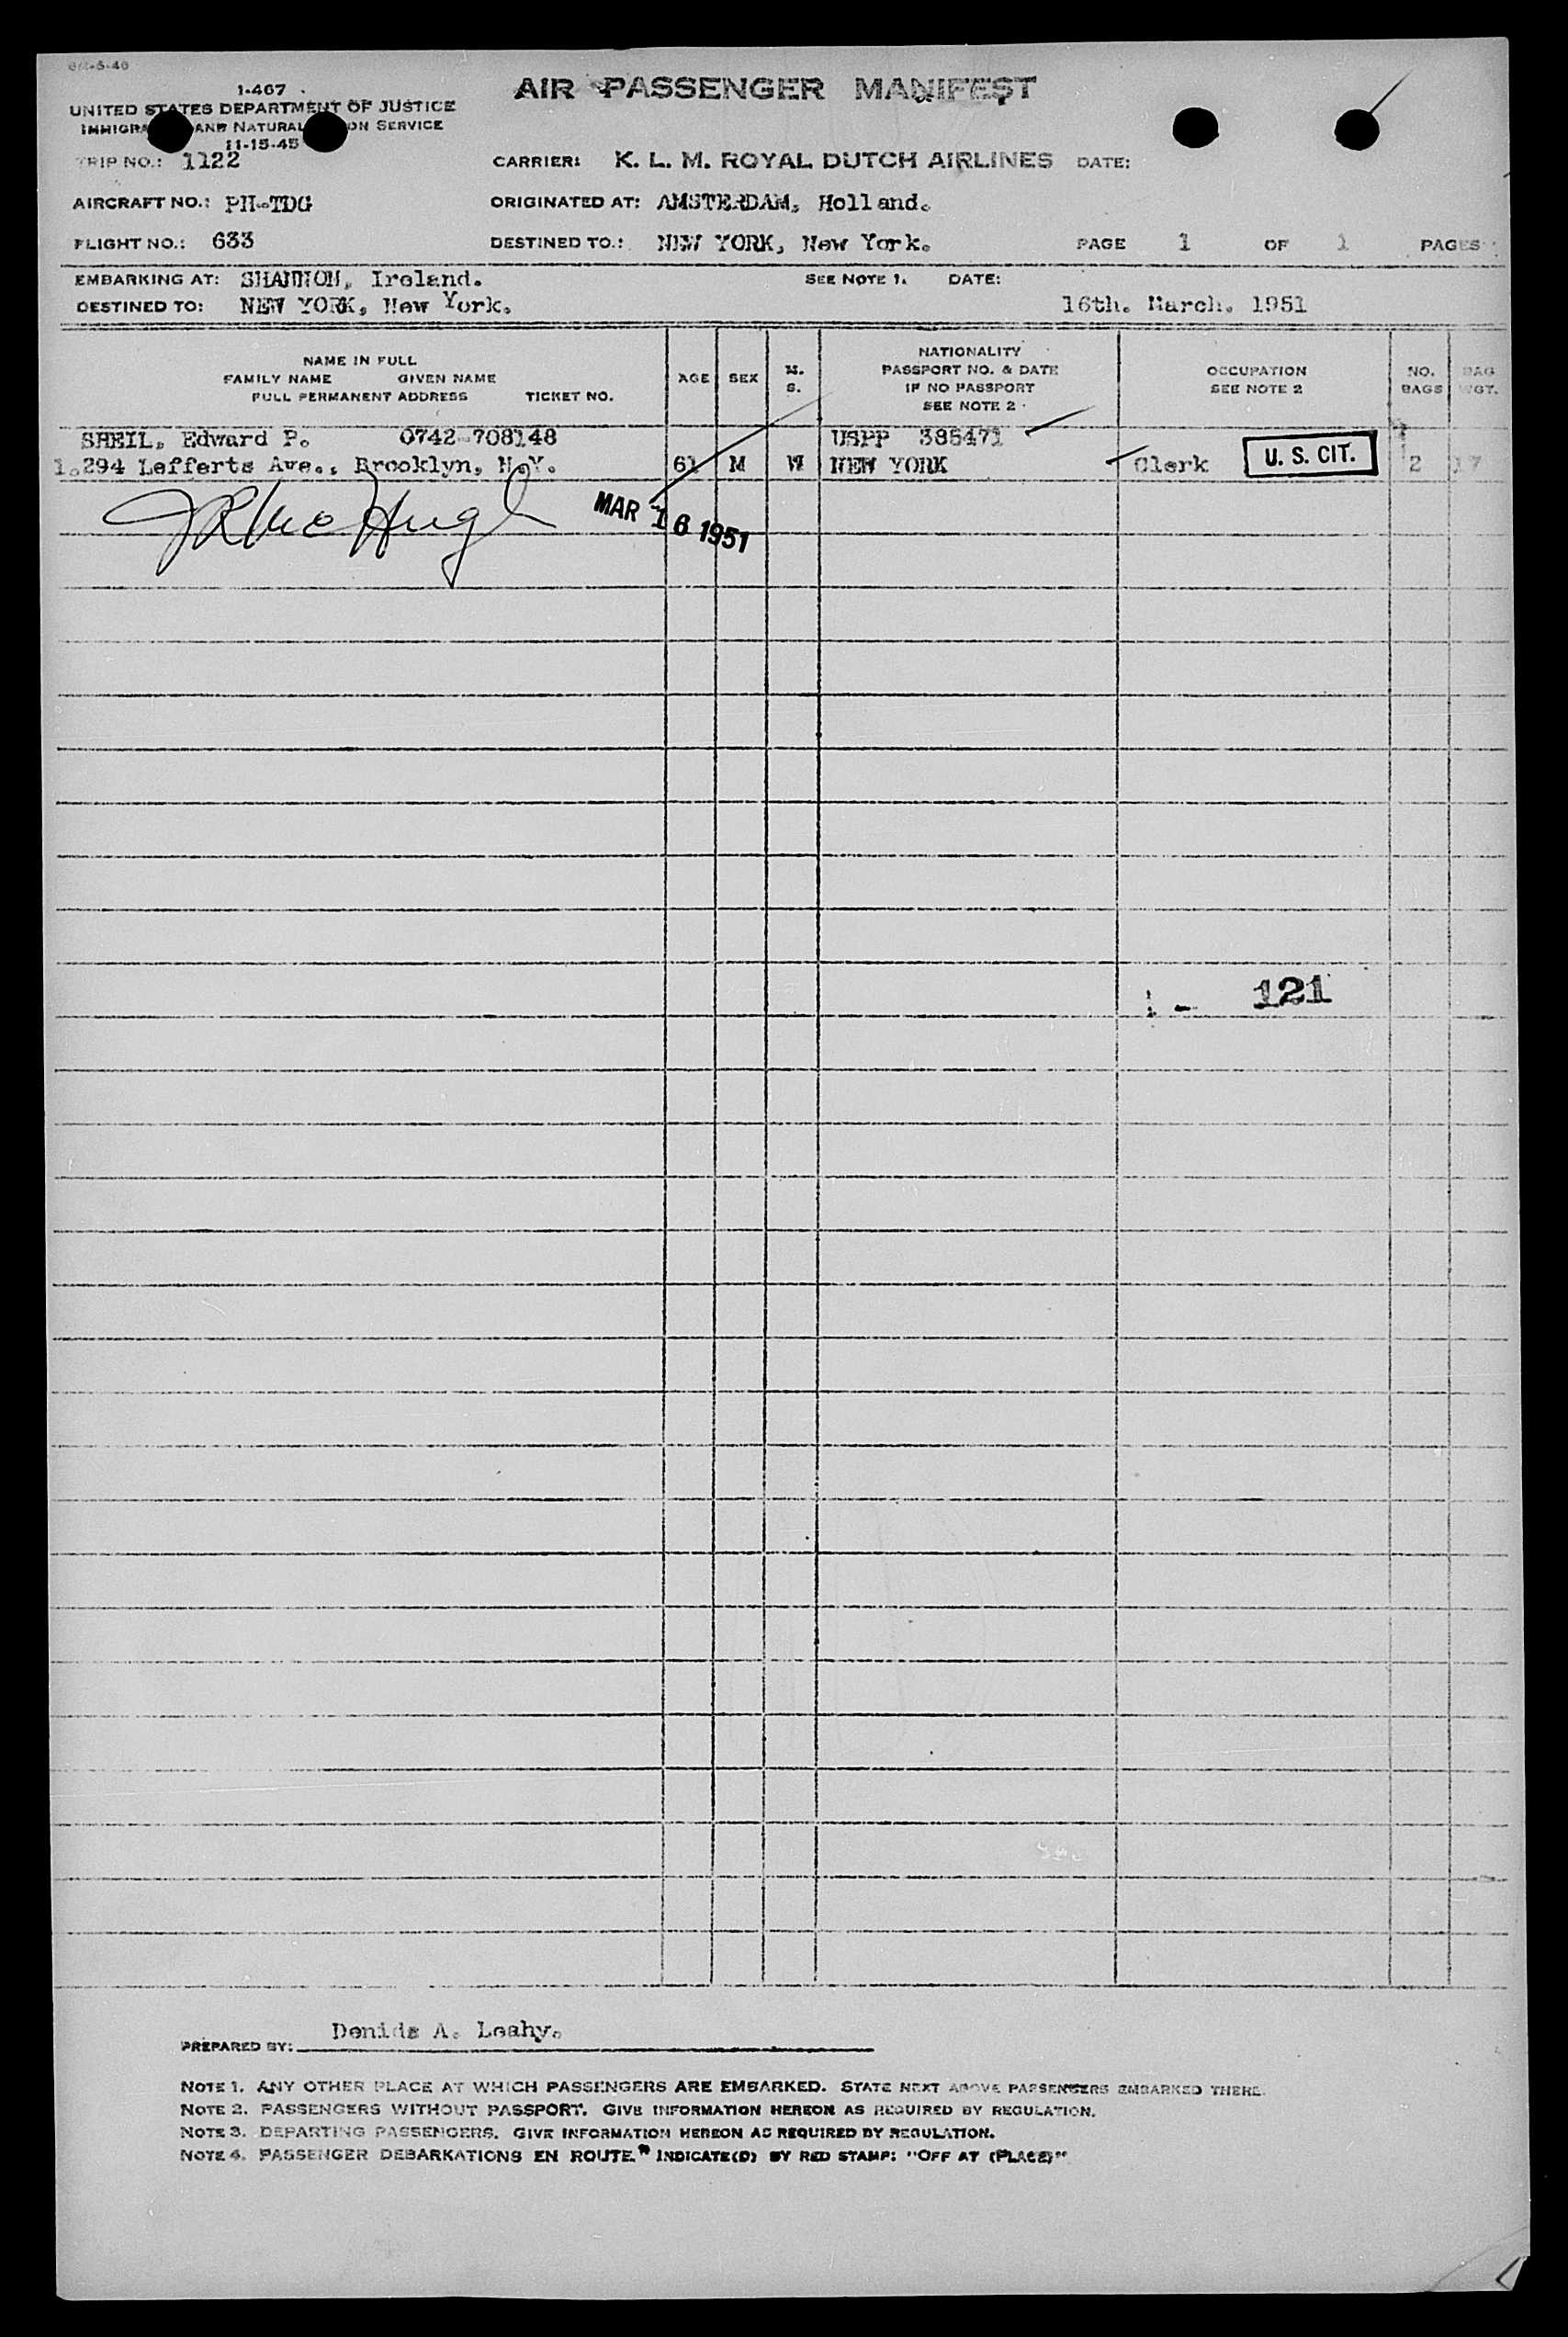 1-467
UNITED STATES DEPARTMENT OF JUSTICE
IMMIGRA AND NATURAL ON SERVICE
11-15-45
AIR PASSENGER MANIFEST
TRIP NO.: 1122 CARRIER: K. L. M. ROYAL DUTCH AIRLINES DATE:
AIRCRAFT NO.: PH-TDG ORIGINATED AT: AMSTERDAM, Holland.
FLIGHT NO.: 633 DESTINED TO.: NEW YORK, New York. PAGE 1 OF 1 PAGES
EMBARKING AT: SHANNON, Ireland. SEE NOTE 1. DATE:
DESTINED TO: NEW YORK, New York. 16th. March. 1951
NAME IN FULL
FAMILY NAME GIVEN NAME
FULL PERMANENT ADDRESS TICKET NO.
AGE SEX M. S.
NATIONALITY
PASSPORT NO. & DATE
IF NO PASSPORT
SEE NOTE 2
OCCUPATION
SEE NOTE 2
NO. BAGS
BAG WGT.
SHEIL, Edward P. 0742-708148 USPP 385471
1. 294 Lefferts Ave., Brooklyn, N.Y. 61 M W NEW YORK Clerk U. S. CIT. 2 17
MAR 16 1951
121
PREPARED BY: Denids A. Leahy.
NOTE 1. ANY OTHER PLACE AT WHICH PASSENGERS ARE EMBARKED. STATE NEXT ABOVE PASSENGERS EMBARKED THERE.
NOTE 2. PASSENGERS WITHOUT PASSPORT. GIVE INFORMATION HEREON AS REQUIRED BY REGULATION.
NOTE 3. DEPARTING PASSENGERS. GIVE INFORMATION HEREON AS REQUIRED BY REGULATION.
NOTE 4. PASSENGER DEBARKATIONS EN ROUTE INDICATE(D) BY RED STAMP: "OFF AT (PLACE)"